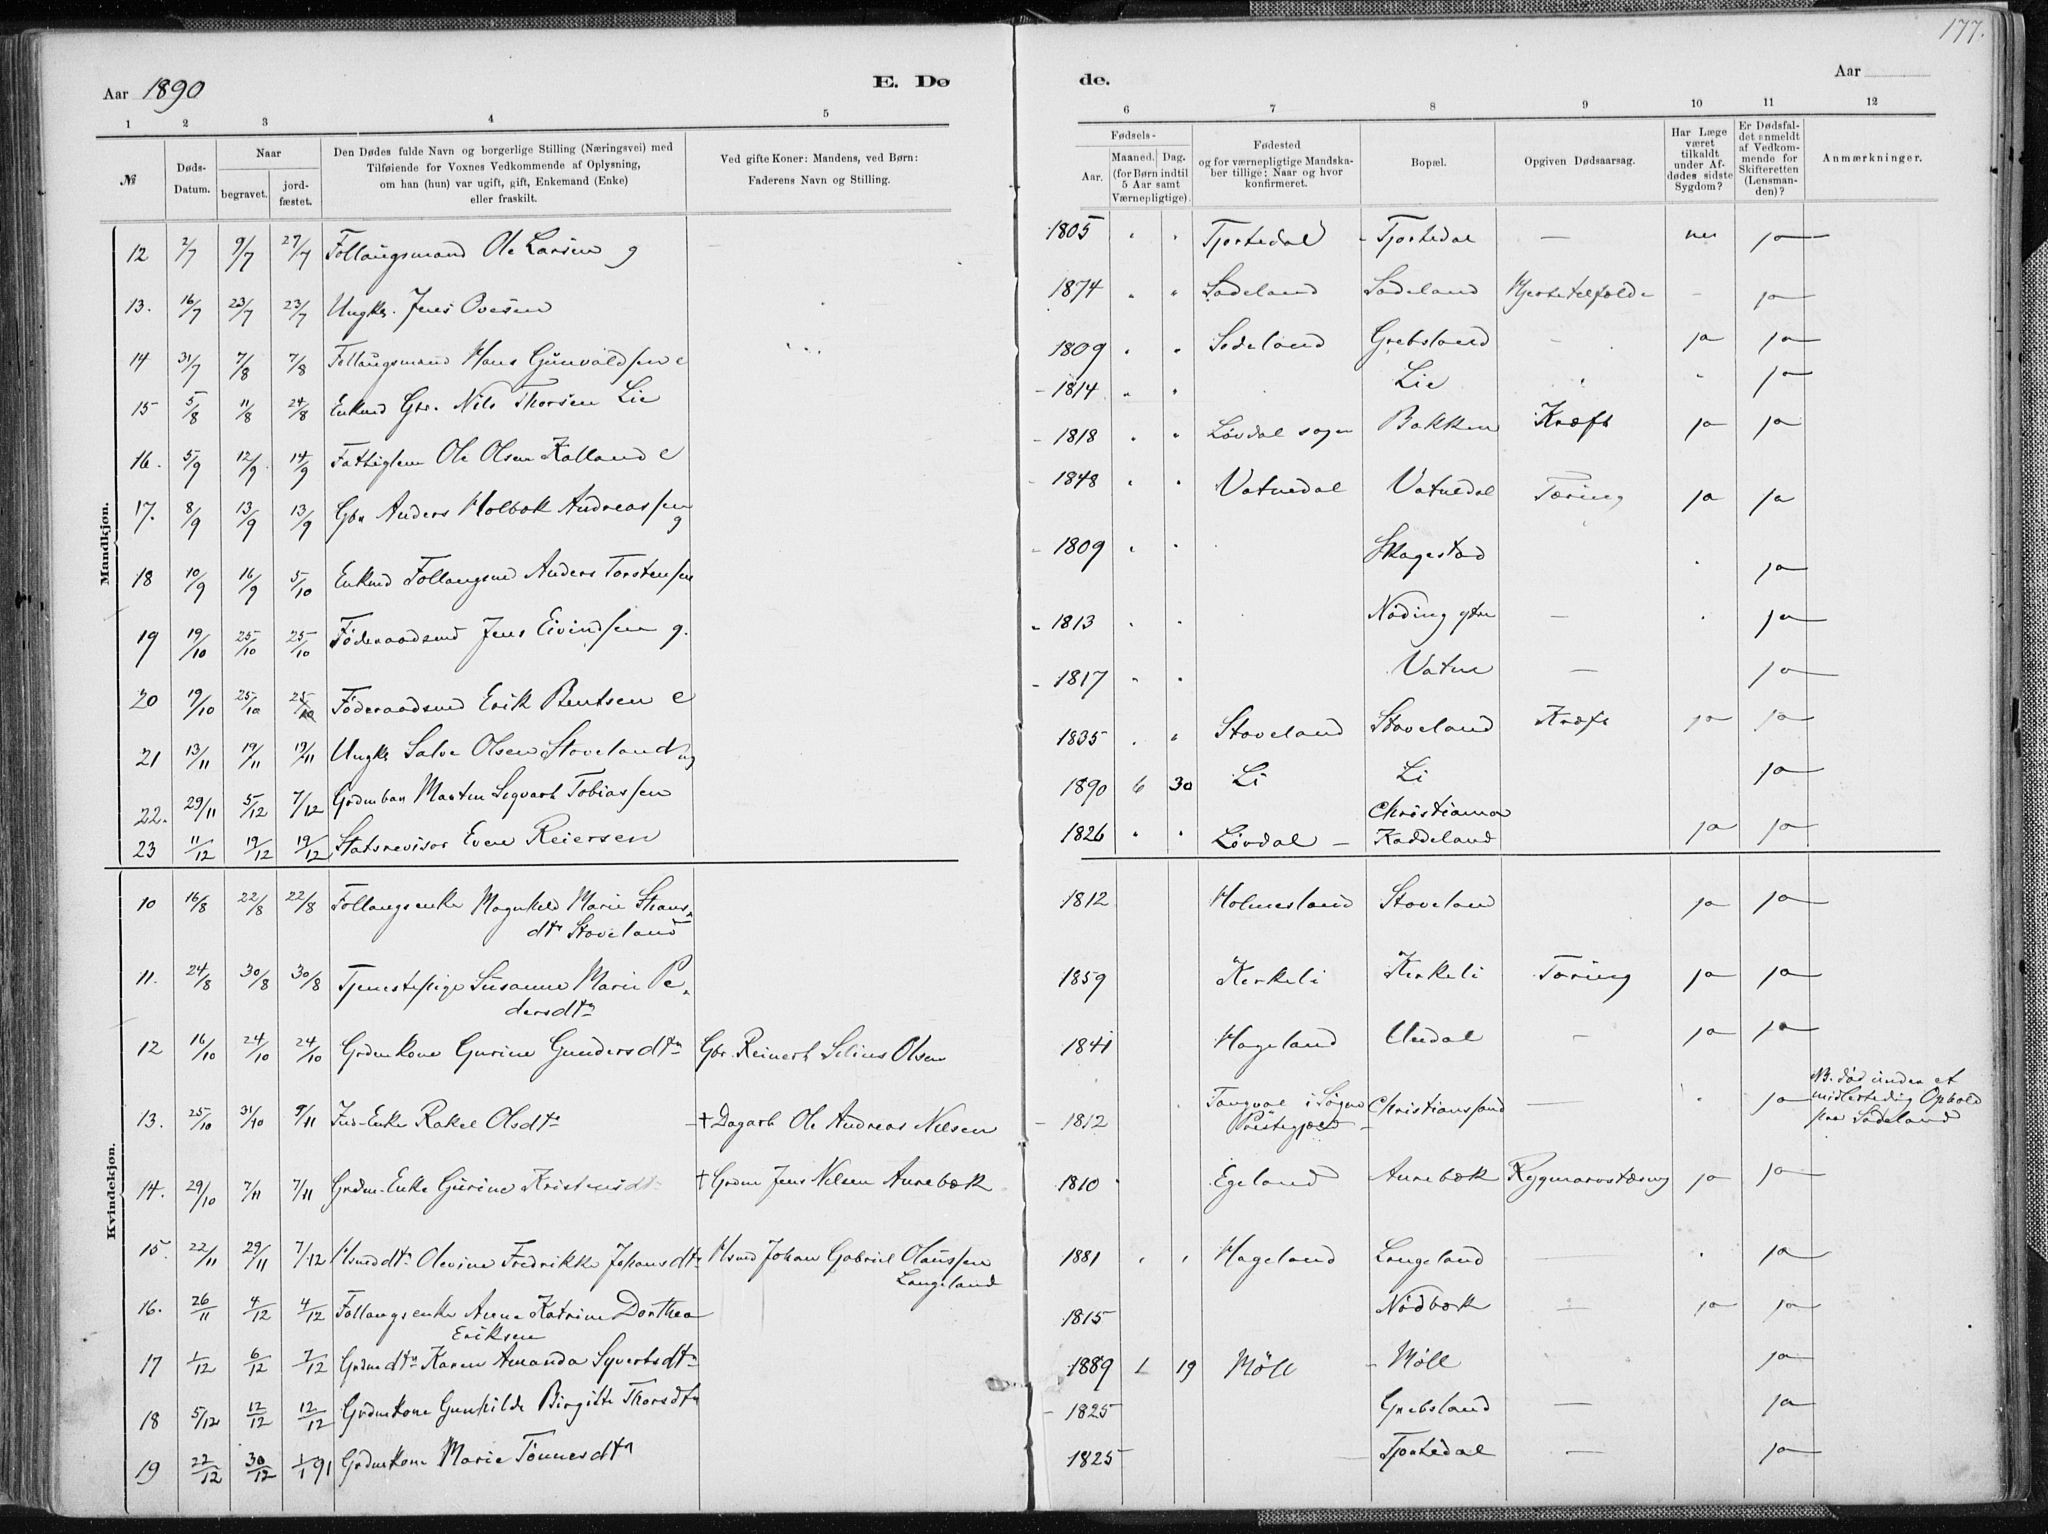 177.
Aar 1890 E. Dø de. Aar
1 2 3 4 5 6 7 8 9 10 11 12
№ Døds-Datum. Naar begravet. jordfæstet. Den Dødes fulde Navn og borgerlige Stilling (Næringsvei) med Tilføiende for Voxnes Vedkommende af Oplysning, om han (hun) var ugift, gift, Enkemand (Enke) eller fraskilt. Ved gifte Koner: Mandens, ved Børn: Faderens Navn og Stilling. Fødsels- Aar. Maaned. Dag. (for Børn indtil 5 Aar samt Værnepligtige). Fødested og for værnepligtige Mandskaber tillige: Naar og hvor konfirmeret. Bopæl. Opgiven Dødsaarsag. Har Læge været tilkaldt under Afdødes sidste Sygdom? Er Dødsfaldet anmeldt af Vedkommende for Skifteretten (Lensmanden)? Anmærkninger.
Mandkjøn.
12 2/7 9/7 27/7 Follaugsmand Ole Larsen g 1805 " " Tjostedal - Tjostedal — nei ja
13. 16/7 23/7 23/7 Ungkr. Jens Ovesen 1874 " " Sodeland Sodeland - ja
14 31/7 7/8 7/8 Follaugsmand Hans Gunvaldsen e 1809 " " Sodeland Grebsland - ja ja
15 5/8 11/8 24/8 Enkmd Gbr. Nils Thorsen Lie - 1814 " " Lie " ja
16. 5/9 12/9 14/9 Fattiglem Ole Olsen Kalland e - 1818 " " Løvdal sogn Bakken Kræft ja ja
17. 8/9 13/9 13/9 Gbr Anders Holbæk Andreassen g - 1848 " " Vatnedal Vatnedal Tæring ja ja
18 10/9 16/9 5/10 Enkmd Follaugsmd Anders Torstensen - 1809 " " Skagestad ja
19 19/10 25/10 25/10 Føderaadsmd Jens Eivindsen g. - 1813 " " Nøding ytre — ja
20 19/10 25/10 25/10 Føderaadsmd Erik Bentsen e - 1817 " " Vatne — ja
21 13/11 19/11 19/11 Ungkr Salve Olsen Stoveland ug 1835 " " Stoveland Stoveland Kræft ja ja
22. 29/11 5/12 7/12 Grdmbarn Martin Sigvart Tobiassen 1890 6 30 Li Li ja
23 11/12 19/12 19/12 Statsrevisor Even Reiersen 1826 " " Løvdal — Christiania Kaddeland ja ja
Kvindekjøn.
10 16/8 22/8 22/8 Follaugsenke Magnhild Marie dtr Stoveland 1812 Holmesland Stoveland ja ja
11. 24/8 30/8 30/8 Tjenestepige Susanne Marie Pedersdtr 1859 Kirkeli Kirkeli Tæring ja ja
12 16/10 24/10 24/10 Grdmkone Gurine Gundersdtr Gbr. Reinert Selius Olsen 1841 Hageland Undal - ja ja
13. 25/10 31/10 9/11 Ind-Enke Rakel Olsdtr + Dagarb Ole Andreas Nilsen - 1812 Tangval i Søgne Præstegjæld Christianssand — ja NB. død under et midlertidig Ophold paa Sodeland
14. 29/10 7/11 7/11 Grdm-Enke Gurine Kristensdtr + Grdm Jens Nilsen Aurebæk 1810 Egeland Aurebæk Rygmarvstæring ja ja
15. 22/11 29/11 7/12 Hsmddtr Olevine Fredrikke Johansdtr Hsmd Johan Gabriel Olaussen Langeland 1881 " " Hageland Langeland — " ja
16. 26/11 4/12 4/12 Follaugsenke Anne Katrine Dorthea Eriksen 1815 Nødbæk - ja ja
17 1/12 6/12 7/12 Grdmdtr Karen Amanda Syvertsdtr 1889 1 19 Møll - Møll ja
18 5/12 12/12 12/12 Grdmkone Gunhilde Birgitte Thorsdtr - 1825 Grebsland — ja
19 22/12 30/12 1/1 91 Grdmkone Marie Tønnesdtr 1825 — Tjostedal — ja